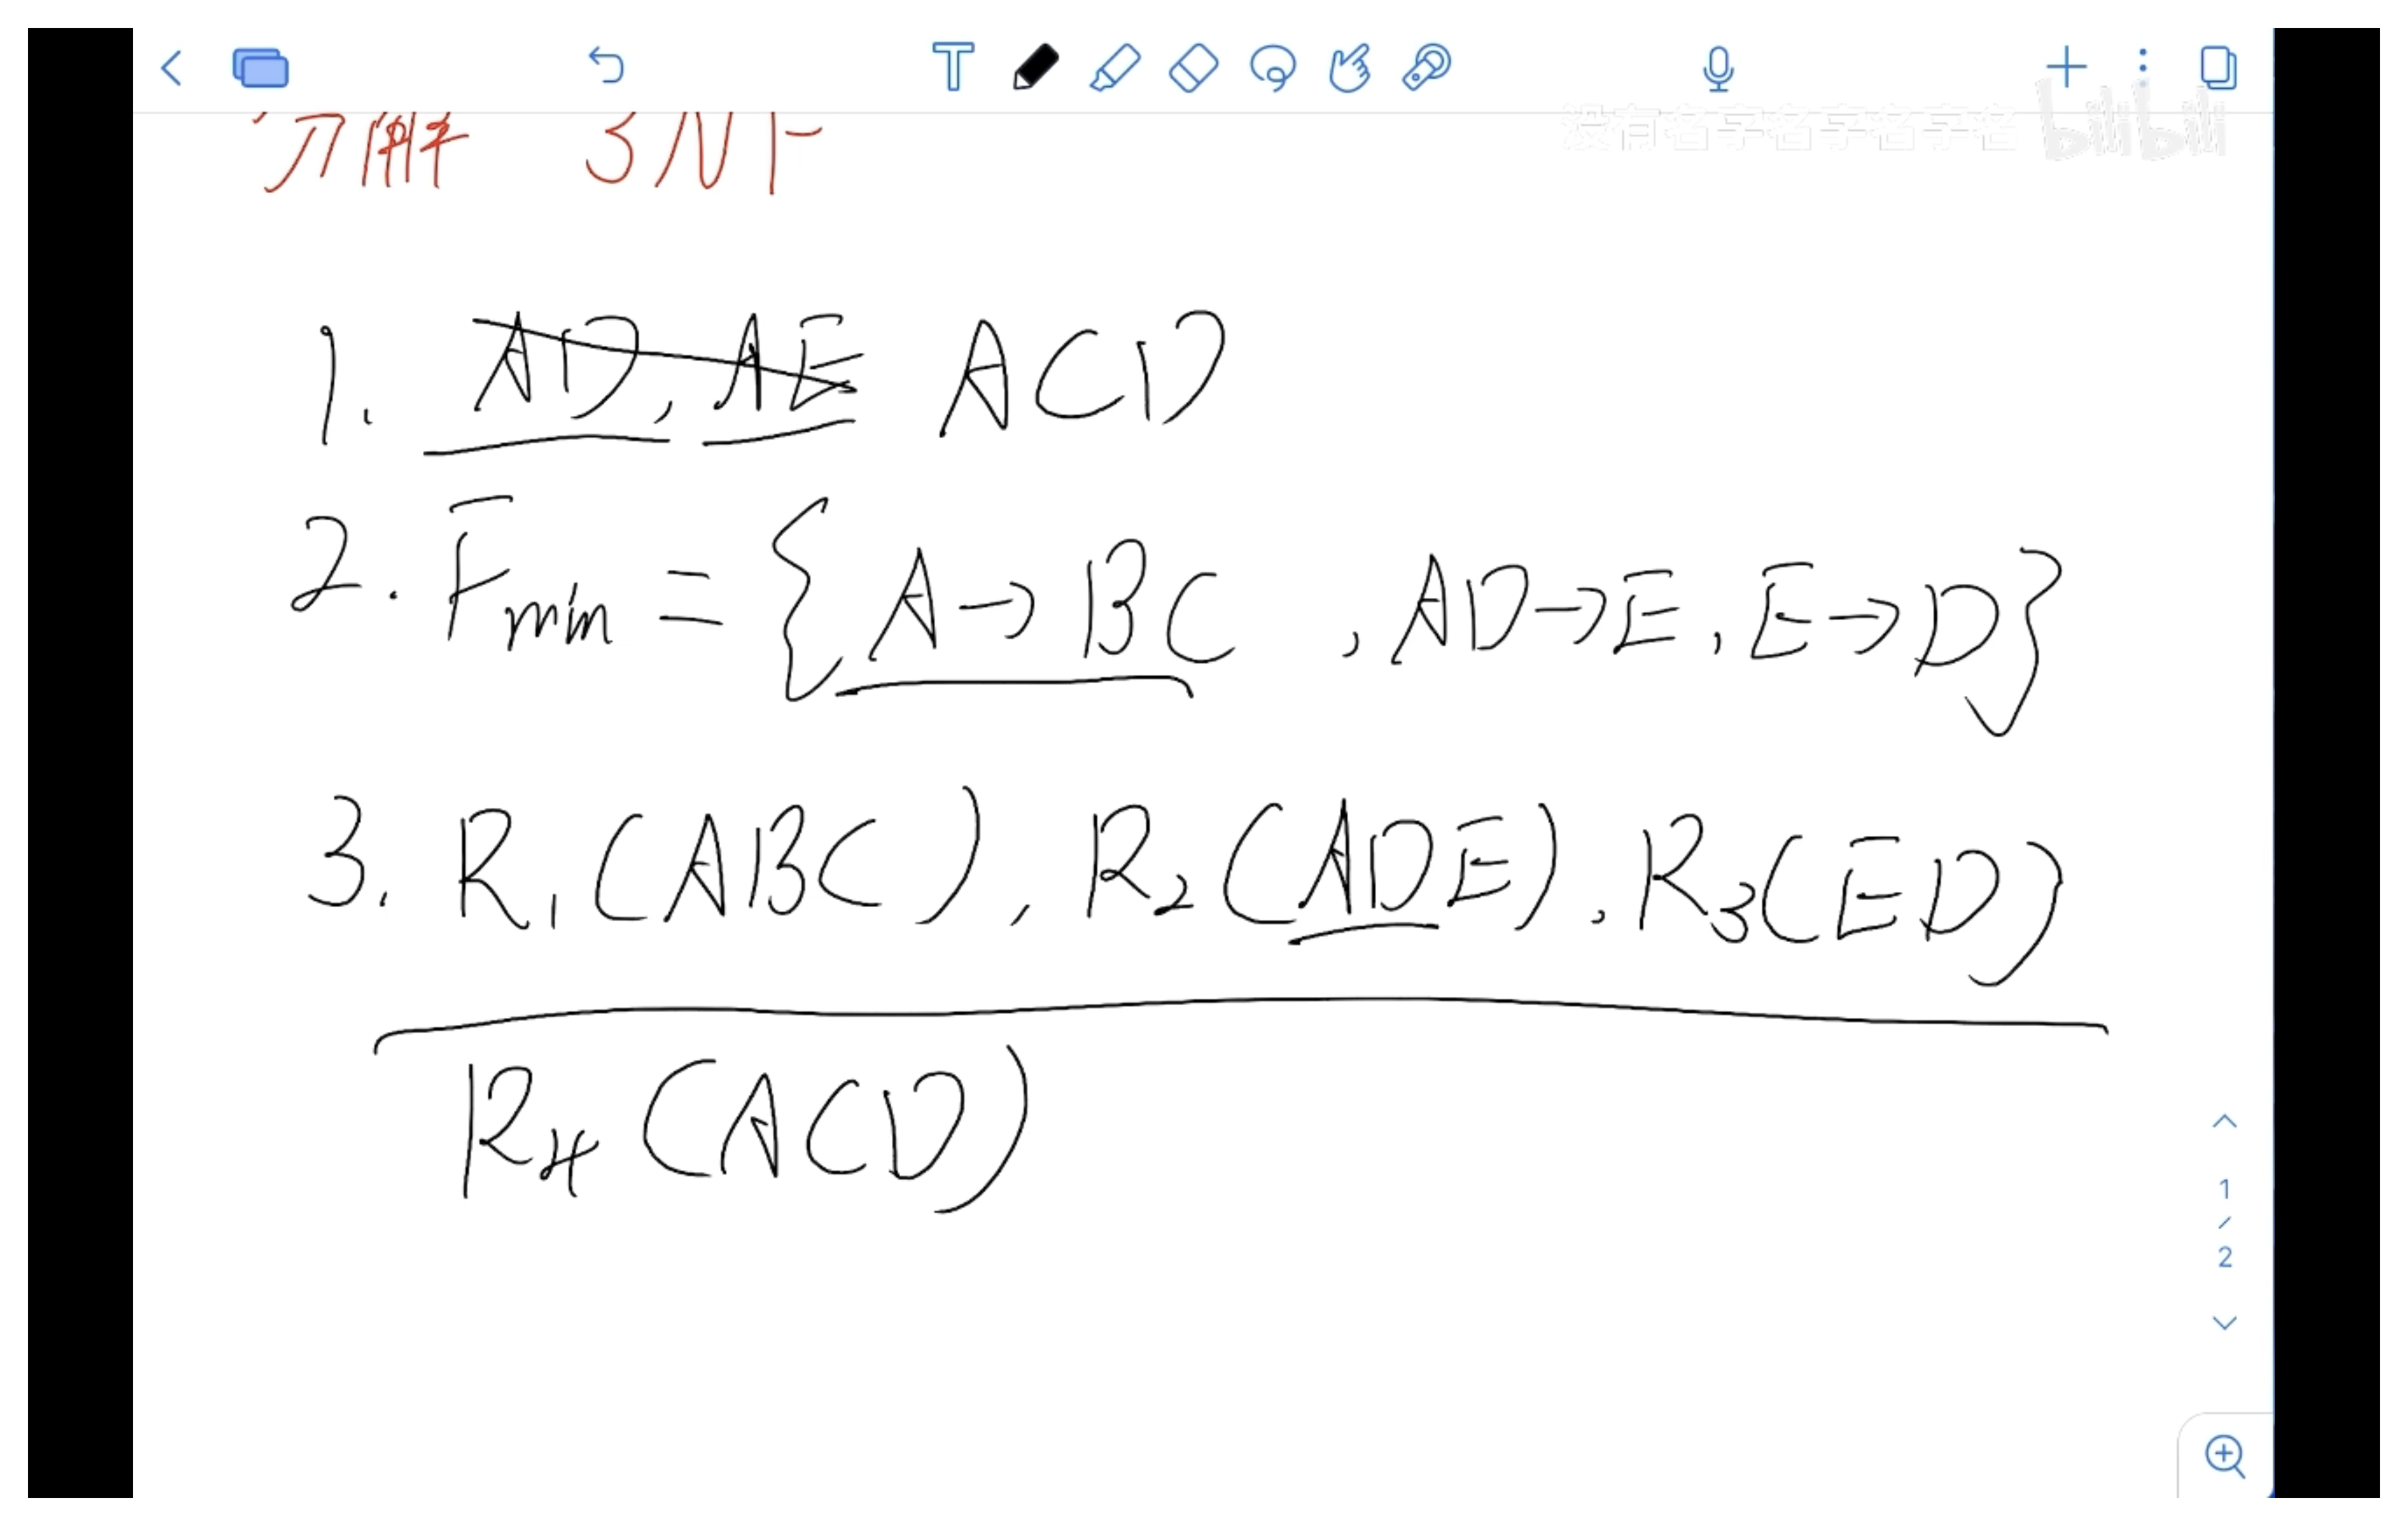 没有名字名字名字名 bilibili
分解 3NF
1. AD, AE ACD
2. Fmin = {A→BC , AD→E, E→D}
3. R1(ABC), R2(ADE), R3(ED)
R4(ACD)
1
/
2